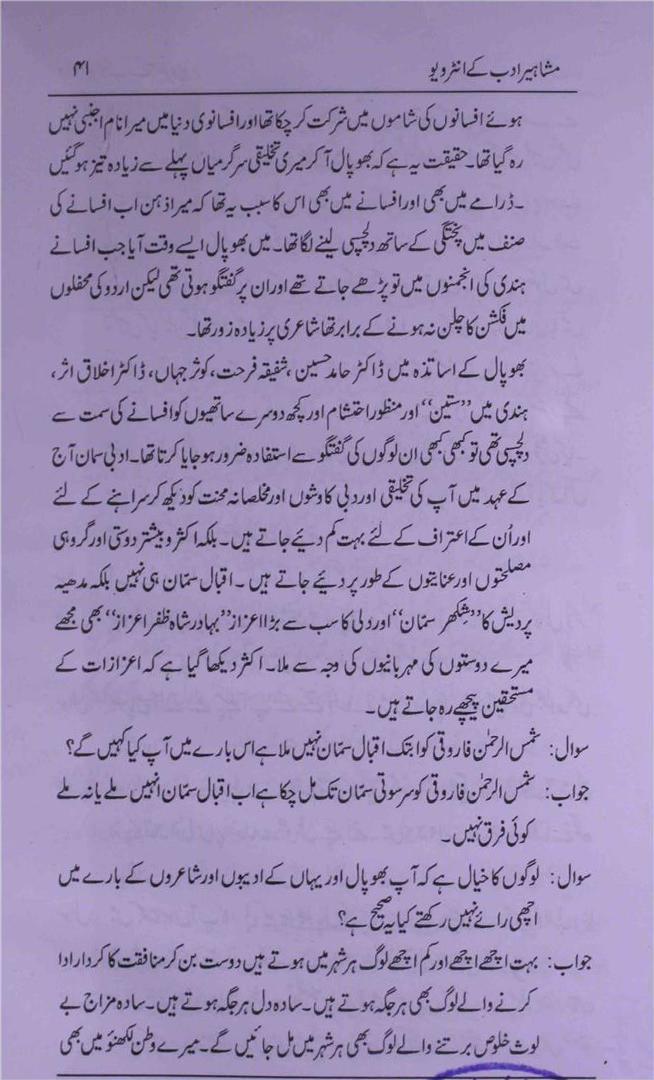 مشاہیر ادب کے انٹرویو ۴۱
ہوئے افسانوں کی شاموں میں شرکت کر چکا تھا اور افسانوی دنیا میں میرا نام اجنبی نہیں
رہ گیا تھا۔ حقیقت یہ ہے کہ بھوپال آ کر میری تخلیقی سرگرمیاں پہلے سے زیادہ تیز ہو گئیں
۔ ڈرامے میں بھی اور افسانے میں بھی اس کا سبب یہ تھا کہ میرا ذہن اب افسانے کی
صنف میں پختگی کے ساتھ دلچسپی لینے لگا تھا۔ میں بھوپال ایسے وقت آیا جب افسانے
ہندی کی انجمنوں میں تو پڑھے جاتے تھے اور ان پر گفتگو ہوتی تھی لیکن اردو کی محفلوں
میں فکشن کا چلن نہ ہونے کے برابر تھا شاعری پر زیادہ زور تھا۔
بھوپال کے اساتذہ میں ڈاکٹر حامد حسین، شفیقہ فرحت، کوثر جہاں، ڈاکٹر اخلاق اثر،
ہندی میں ”ستین“ اور منظور احتشام اور کچھ دوسرے ساتھیوں کو افسانے کی سمت سے
دلچسپی تھی تو کبھی کبھی ان لوگوں کی گفتگو سے استفادہ ضرور ہو جایا کرتا تھا۔ ادبی سمان آج
کے عہد میں آپ کی تخلیقی اور دبی کاوشوں اور مخلصانہ محنت کو دیکھ کر سراہنے کے لئے
اور اُن کے اعتراف کے لئے بہت کم دیئے جاتے ہیں۔ بلکہ اکثر و بیشتر دوستی اور گروہی
مصلحتوں اور عنایتوں کے طور پر دیئے جاتے ہیں ۔ اقبال سمّان ہی نہیں بلکہ مدھیہ
پردیش کا ”شِکھر سمّان“ اور دلی کا سب سے بڑا اعزاز ”بہادر شاہ ظفر اعزاز“ بھی مجھے
میرے دوستوں کی مہربانیوں کی وجہ سے ملا۔ اکثر دیکھا گیا ہے کہ اعزازات کے
مستحقین پیچھے رہ جاتے ہیں۔
سوال: شمس الرحمٰن فاروقی کو ابتک اقبال سمّان نہیں ملا ہے اس بارے میں آپ کیا کہیں گے؟
جواب: شمس الرحمٰن فاروقی کو سرسوتی سمّان تک مل چکا ہے اب اقبال سمّان انہیں ملے یا نہ ملے
کوئی فرق نہیں۔
سوال: لوگوں کا خیال ہے کہ آپ بھوپال اور یہاں کے ادیبوں اور شاعروں کے بارے میں
اچھی رائے نہیں رکھتے کیا یہ صحیح ہے؟
جواب: بہت اچھے اچھے اور کم اچھے لوگ ہر شہر میں ہوتے ہیں دوست بن کر منافقت کا کردار ادا
کرنے والے لوگ بھی ہر جگہ ہوتے ہیں۔ سادہ دل ہر جگہ ہوتے ہیں۔ سادہ مزاج بے
لوث خلوص برتنے والے لوگ بھی ہر شہر میں مل جائیں گے۔ میرے وطن لکھنؤ میں بھی